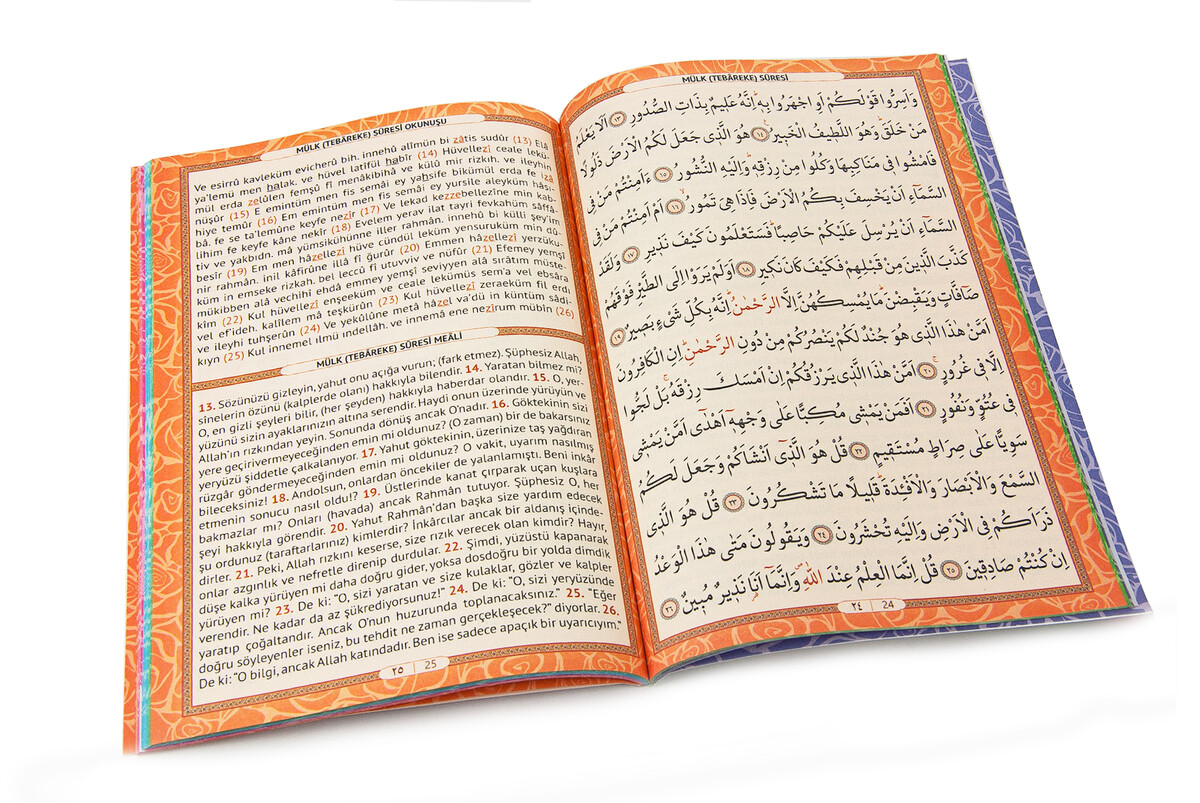 MÜLK (TEBÂREKE) SÛRESİ
وَاَسِرُّوا قَوْلَكُمْ اَوِ اجْهَرُوا بِهِ اِنَّهُ عَلِيمٌ بِذَاتِ الصُّدُورِ ١٣ اَلَا يَعْلَمُ
مَنْ خَلَقَ وَهُوَ اللَّطِيفُ الْخَبِيرُ ١٤ هُوَ الَّذِى جَعَلَ لَكُمُ الْاَرْضَ ذَلُولًا
فَامْشُوا فِى مَنَاكِبِهَا وَكُلُوا مِنْ رِزْقِهِ وَاِلَيْهِ النُّشُورُ ١٥ ءَاَمِنْتُمْ مَنْ فِى
السَّمَٓاءِ اَنْ يَخْسِفَ بِكُمُ الْاَرْضَ فَاِذَا هِىَ تَمُورُ ١٦ اَمْ اَمِنْتُمْ مَنْ فِى
السَّمَٓاءِ اَنْ يُرْسِلَ عَلَيْكُمْ حَاصِبًا فَسَتَعْلَمُونَ كَيْفَ نَذِيرِ ١٧ وَلَقَدْ
كَذَّبَ الَّذِينَ مِنْ قَبْلِهِمْ فَكَيْفَ كَانَ نَكِيرِ ١٨ اَوَلَمْ يَرَوْا اِلَى الطَّيْرِ فَوْقَهُمْ
صَٓافَّاتٍ وَيَقْبِضْنَ مَا يُمْسِكُهُنَّ اِلَّا الرَّحْمٰنُ اِنَّهُ بِكُلِّ شَىْءٍ بَصِيرٌ ١٩
اَمَّنْ هٰذَا الَّذِى هُوَ جُنْدٌ لَكُمْ يَنْصُرُكُمْ مِنْ دُونِ الرَّحْمٰنِ اِنِ الْكَافِرُونَ
اِلَّا فِى غُرُورٍ ٢٠ اَمَّنْ هٰذَا الَّذِى يَرْزُقُكُمْ اِنْ اَمْسَكَ رِزْقَهُ بَلْ لَجُّوا
فِى عُتُوٍّ وَنُفُورٍ ٢١ اَفَمَنْ يَمْشِى مُكِبًّا عَلٰى وَجْهِهِ اَهْدٰى اَمَّنْ يَمْشِى
سَوِيًّا عَلٰى صِرَاطٍ مُسْتَقِيمٍ ٢٢ قُلْ هُوَ الَّذِى اَنْشَاَكُمْ وَجَعَلَ لَكُمُ
السَّمْعَ وَالْاَبْصَارَ وَالْاَفْـِٔدَةَ قَلِيلًا مَا تَشْكُرُونَ ٢٣ قُلْ هُوَ الَّذِى
ذَرَاَكُمْ فِى الْاَرْضِ وَاِلَيْهِ تُحْشَرُونَ ٢٤ وَيَقُولُونَ مَتٰى هٰذَا الْوَعْدُ
اِنْ كُنْتُمْ صَادِقِينَ ٢٥ قُلْ اِنَّمَا الْعِلْمُ عِنْدَ اللّٰهِ وَاِنَّمَٓا اَنَا نَذِيرٌ مُبِينٌ ٢٦
٢٤ | 24
MÜLK (TEBÂREKE) SÛRESİ OKUNUŞU
Ve esirrû kavleküm evicherû bih. innehû alîmün bi zâtis sudûr (13) Elâ
ya'lemü men halak. ve hüvel latîfül habîr (14) Hüvellezî ceale lekü-
mül erda zelûlen femşû fî menâkibihâ ve külû mir rizkıh. ve ileyhin
nüşûr (15) E emintüm men fis semâi ey yahsife bikümül erda fe izâ
hiye temûr (16) Em emintüm men fis semâi ey yursile aleyküm hâsı-
bâ. fe se ta'lemûne keyfe nezîr (17) Ve lekad kezzebellezîne min kab-
lihim fe keyfe kâne nekîr (18) Evelem yerav ilat tayri fevkahüm sâffâ-
tiv ve yakbıdn. mâ yümsikühünne iller rahmân. innehû bi külli şey'im
besîr (19) Em men hâzellezî hüve cündül leküm yensuruküm min dû-
nir rahmân. inil kâfirûne illâ fî ğurûr (20) Emmen hâzellezî yerzükü-
küm in emseke rizkah. bel leccû fî utuvviv ve nüfûr (21) Efemey yemşî
mükibben alâ vechihî ehdâ emmey yemşî seviyyen alâ sırâtım müste-
kîm (22) Kul hüvellezî enşeeküm ve ceale lekümüs sem'a vel ebsâra
vel ef'ideh. kalîlem mâ teşkürûn (23) Kul hüvellezî zeraeküm fil erdı
ve ileyhi tuhşerûn (24) Ve yekûlûne metâ hâzel va'dü in küntüm sâdi-
kıyn (25) Kul innemel ılmü indellâh. ve innemâ ene nezîrum mübîn (26)
MÜLK (TEBÂREKE) SÛRESİ MEÂLİ
13. Sözünüzü gizleyin, yahut onu açığa vurun; (fark etmez). Şüphesiz Allah,
sinelerin özünü (kalplerde olanı) hakkıyla bilendir. 14. Yaratan bilmez mi?
O, en gizli şeyleri bilir, (her şeyden) hakkıyla haberdar olandır. 15. O, yer-
yüzünü sizin ayaklarınızın altına serendir. Haydi onun üzerinde yürüyün ve
Allah'ın rızkından yeyin. Sonunda dönüş ancak O'nadır. 16. Göktekinin sizi
yere geçirivermeyeceğinden emin mi oldunuz? (O zaman) bir de bakarsınız
yeryüzü şiddetle çalkalanıyor. 17. Yahut göktekinin, üzerinize taş yağdıran
rüzgâr göndermeyeceğinden emin mi oldunuz? O vakit, uyarım nasılmış
bileceksiniz! 18. Andolsun, onlardan öncekiler de yalanlamıştı. Beni inkâr
etmenin sonucu nasıl oldu!? 19. Üstlerinde kanat çırparak uçan kuşlara
bakmazlar mı? Onları (havada) ancak Rahmân tutuyor. Şüphesiz O, her
şeyi hakkıyla görendir. 20. Yahut Rahmân'dan başka size yardım edecek
şu ordunuz (taraftarlarınız) kimlerdir? İnkârcılar ancak bir aldanış içinde-
dirler. 21. Peki, Allah rızkını keserse, size rızık verecek olan kimdir? Hayır,
onlar azgınlık ve nefretle direnip durdular. 22. Şimdi, yüzüstü kapanarak
düşe kalka yürüyen mi daha doğru gider, yoksa dosdoğru bir yolda dimdik
yürüyen mi? 23. De ki: "O, sizi yaratan ve size kulaklar, gözler ve kalpler
verendir. Ne kadar da az şükrediyorsunuz!" 24. De ki: "O, sizi yeryüzünde
yaratıp çoğaltandır. Ancak O'nun huzurunda toplanacaksınız." 25. "Eğer
doğru söyleyenler iseniz, bu tehdit ne zaman gerçekleşecek?" diyorlar. 26.
De ki: "O bilgi, ancak Allah katındadır. Ben ise sadece apaçık bir uyarıcıyım."
٢٥ | 25